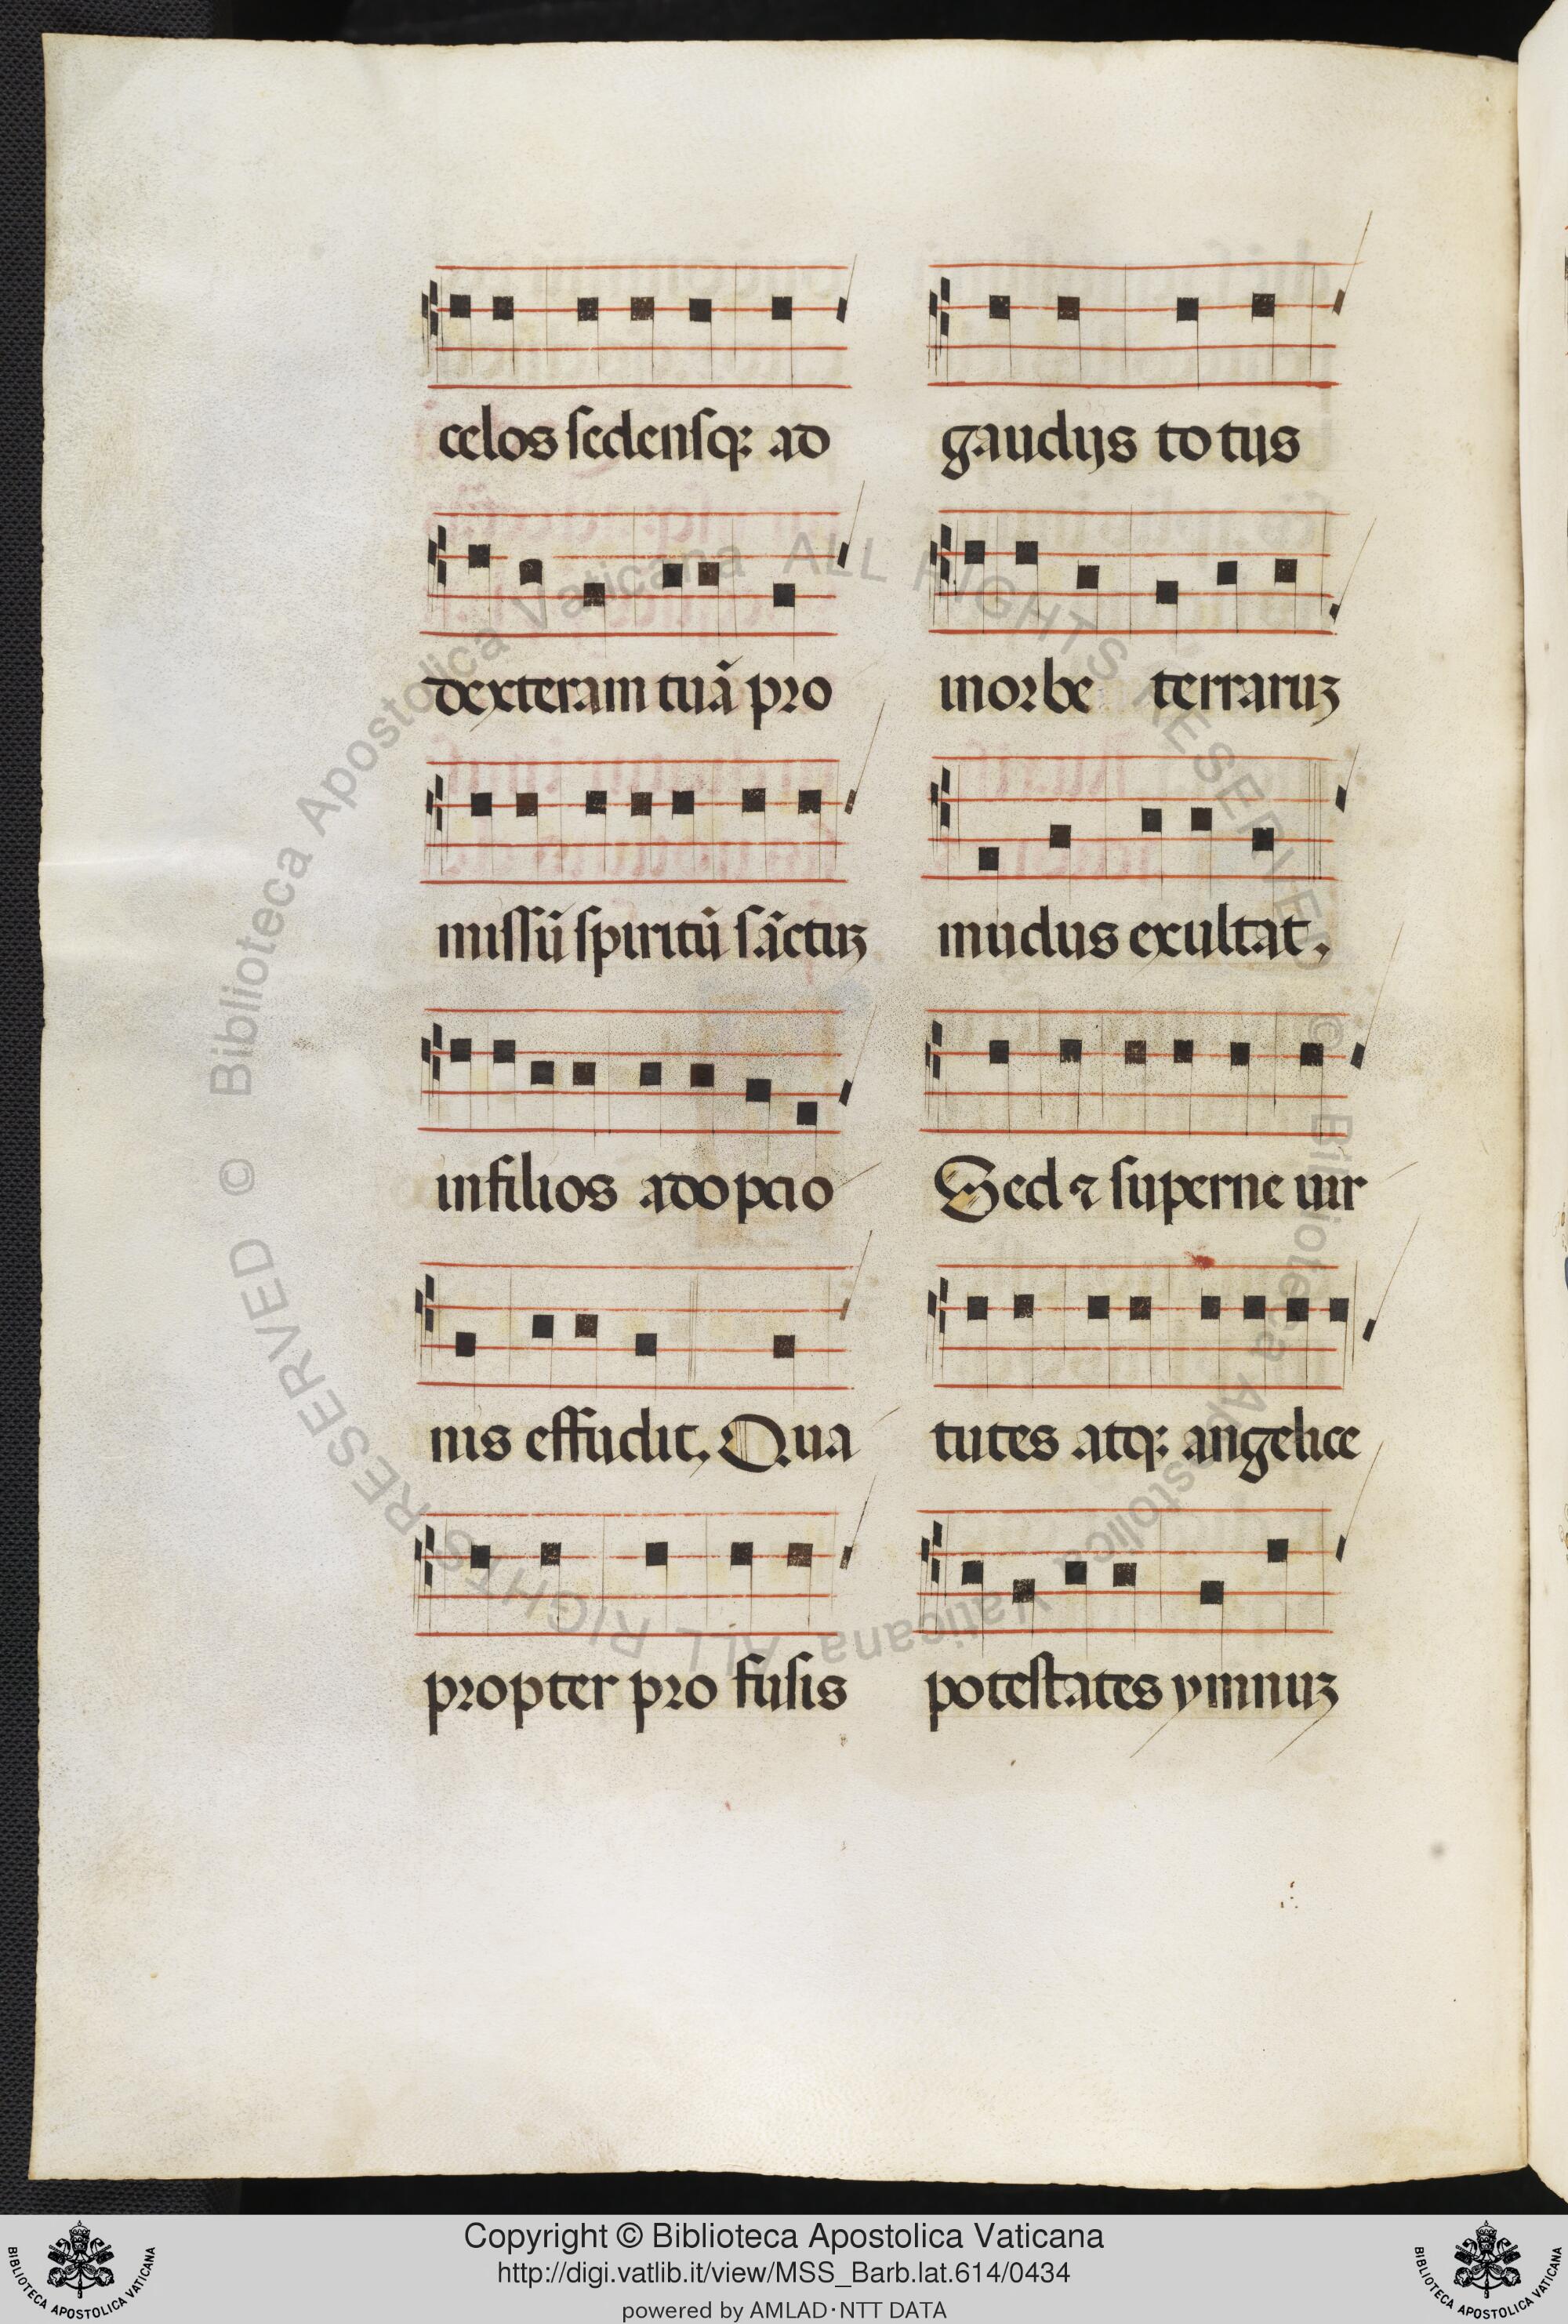 celos sedensq; ad
dexteram tuā pro
missū spiritū sāctuꝫ
infilios adopcio
nis effudit. Qua
propter pro fusis
gaudijs totus
inorbe terraruꝫ
mūdus exultat.
Sed ⁊ superne uir
tutes atq; angelice
potestates ymnuꝫ
© Biblioteca Apostolica Vaticana ALL RIGHTS RESERVED © Biblioteca Apostolica Vaticana ALL RIGHTS RESERVED
BIBLIOTECA APOSTOLICA VATICANA
Copyright © Biblioteca Apostolica Vaticana
http://digi.vatlib.it/view/MSS_Barb.lat.614/0434
powered by AMLAD·NTT DATA
BIBLIOTECA APOSTOLICA VATICANA